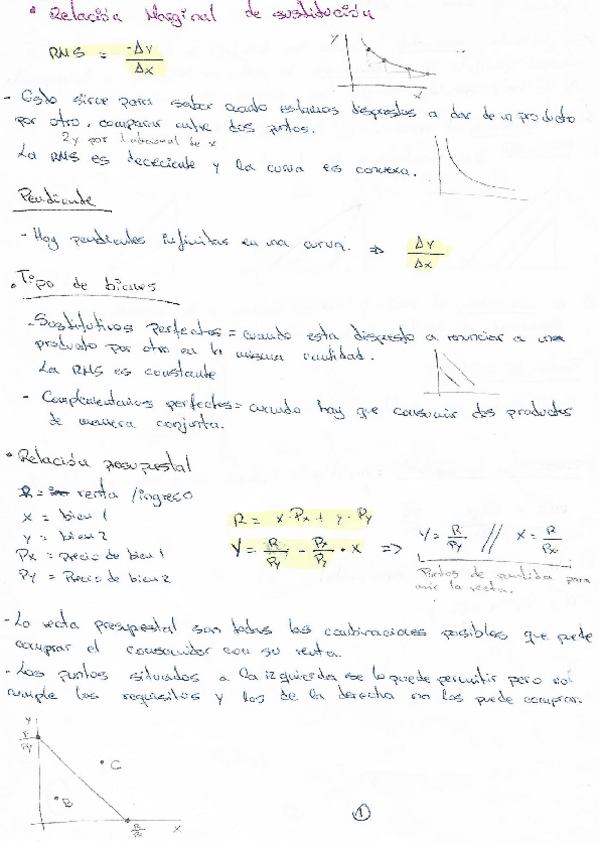 • Relación Marginal de sustitución
RMS = -ΔY / ΔX
Y
X
- Esto sirve para saber cuando estamos dispuestos a dar de un producto
por otro, comparar entre dos puntos.
2y por 1 adicional de x
La RMS es decreciente y la curva es convexa.
Pendiente
- Hay pendientes infinitas en una curva. => ΔY / ΔX
• Tipo de bienes
- Sustitutivos perfectos = cuando esta dispuesto a renunciar a un
producto por otro en la misma cantidad.
La RMS es constante
- Complementarios perfectos = cuando hay que consumir dos productos
de manera conjunta.
• Relación presupuestal
R = renta / ingreso
X = bien 1
Y = bien 2
Px = Precio de bien 1
Py = Precio de bien 2
R = x · Px + y · Py
Y = R/Py - Px/Py · x => Y = R/Py // X = R/Px
Puntos de partida para
unir la recta.
- La recta presupestal son todas las combinaciones posibles que puede
comprar el consumidor con su renta.
- Los puntos situados a la izquierda se lo puede permitir pero no
cumple los requisitos y los de la derecha no los puede comprar.
Y
R/Py
• C
• B
R/Px
X
1